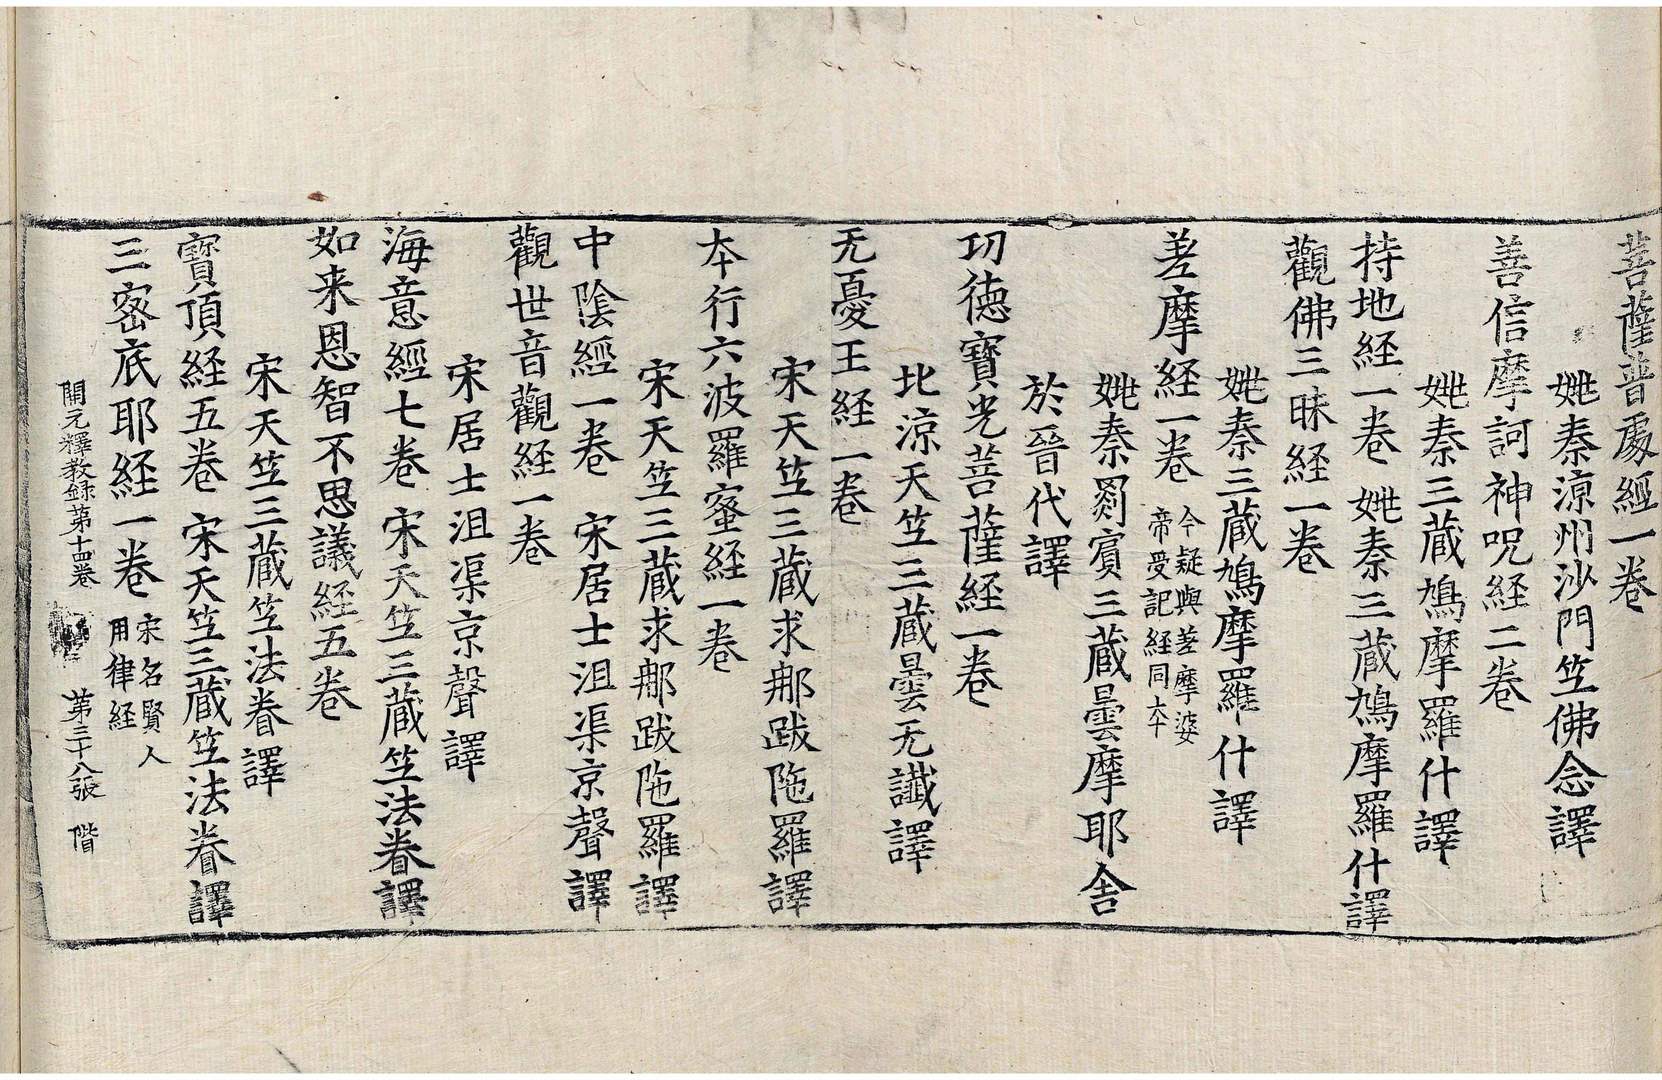 菩薩普處經一卷
姚秦涼州沙門笁佛念譯
善信摩訶神呪経二卷
姚秦三藏鳩摩羅什譯
持地経一卷 姚秦三藏鳩摩羅什譯
觀佛三昧経一卷
姚秦三藏鳩摩羅什譯
差摩経一卷 今疑與差摩婆
帝受記経同夲
姚秦罽賓三藏曇摩耶舍
於晉代譯
功徳寶光菩薩経一卷
北涼天笁三藏曇无讖譯
无憂王経一卷
宋天笁三藏求那跋陁羅譯
夲行六波羅蜜経一卷
宋天笁三藏求那跋陁羅譯
中陰經一卷 宋居士沮渠京聲譯
觀世音觀経一卷
宋居士沮渠京聲譯
海意經七卷 宋天笁三藏笁法眷譯
如来恩智不思議経五卷
宋天笁三藏笁法眷譯
寶頂経五卷 宋天笁三藏笁法眷譯
三密底耶経一卷 宋名賢人
用律経
開元釋教録第十四卷 第三十八張 階